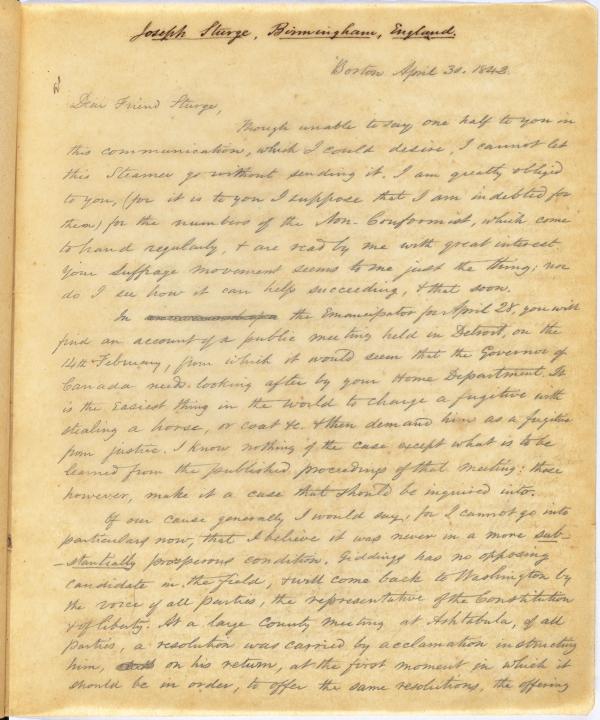 Joseph Sturge, Birmingham, England.
Boston April 30. 1842.
Dear Friend Sturge,
Though unable to say one half to you in
this communication, which I could desire, I cannot let
this Steamer go without sending it. I am greatly obliged
to you, (for it is to you I suppose that I am indebted for
them) for the numbers of the Non-Conformist, which come
to hand regularly, & are read by me with great interest.
Your suffrage movement seems to me just the thing; nor
do I see how it can help succeeding, & that soon.
In the Emancipator for April 28, you will
find an account of a public meeting held in Detroit, on the
14th February, from which it would seem that the Governor of
Canada needs looking after by your Home Department. It
is the easiest thing in the world to charge a fugitive with
stealing a horse, or coat &c. & then demand him as a fugitive
from justice. I know nothing of the case except what is to be
learned from the published proceedings of that meeting: those
however, make it a case that should be inquired into.
Of our cause generally I would say, for I cannot go into
particulars now, that I believe it was never in a more sub-
-stantially prosperous condition. Giddings has no opposing
candidate in the field, & will come back to Washington by
the voice of all parties, the representative of the Constitution
& of liberty. At a large County meeting at Ashtabula, of all
parties, a resolution was carried by acclamation instructing
him, on his return, at the first moment in which it
should be in order, to offer the same resolutions, the offering